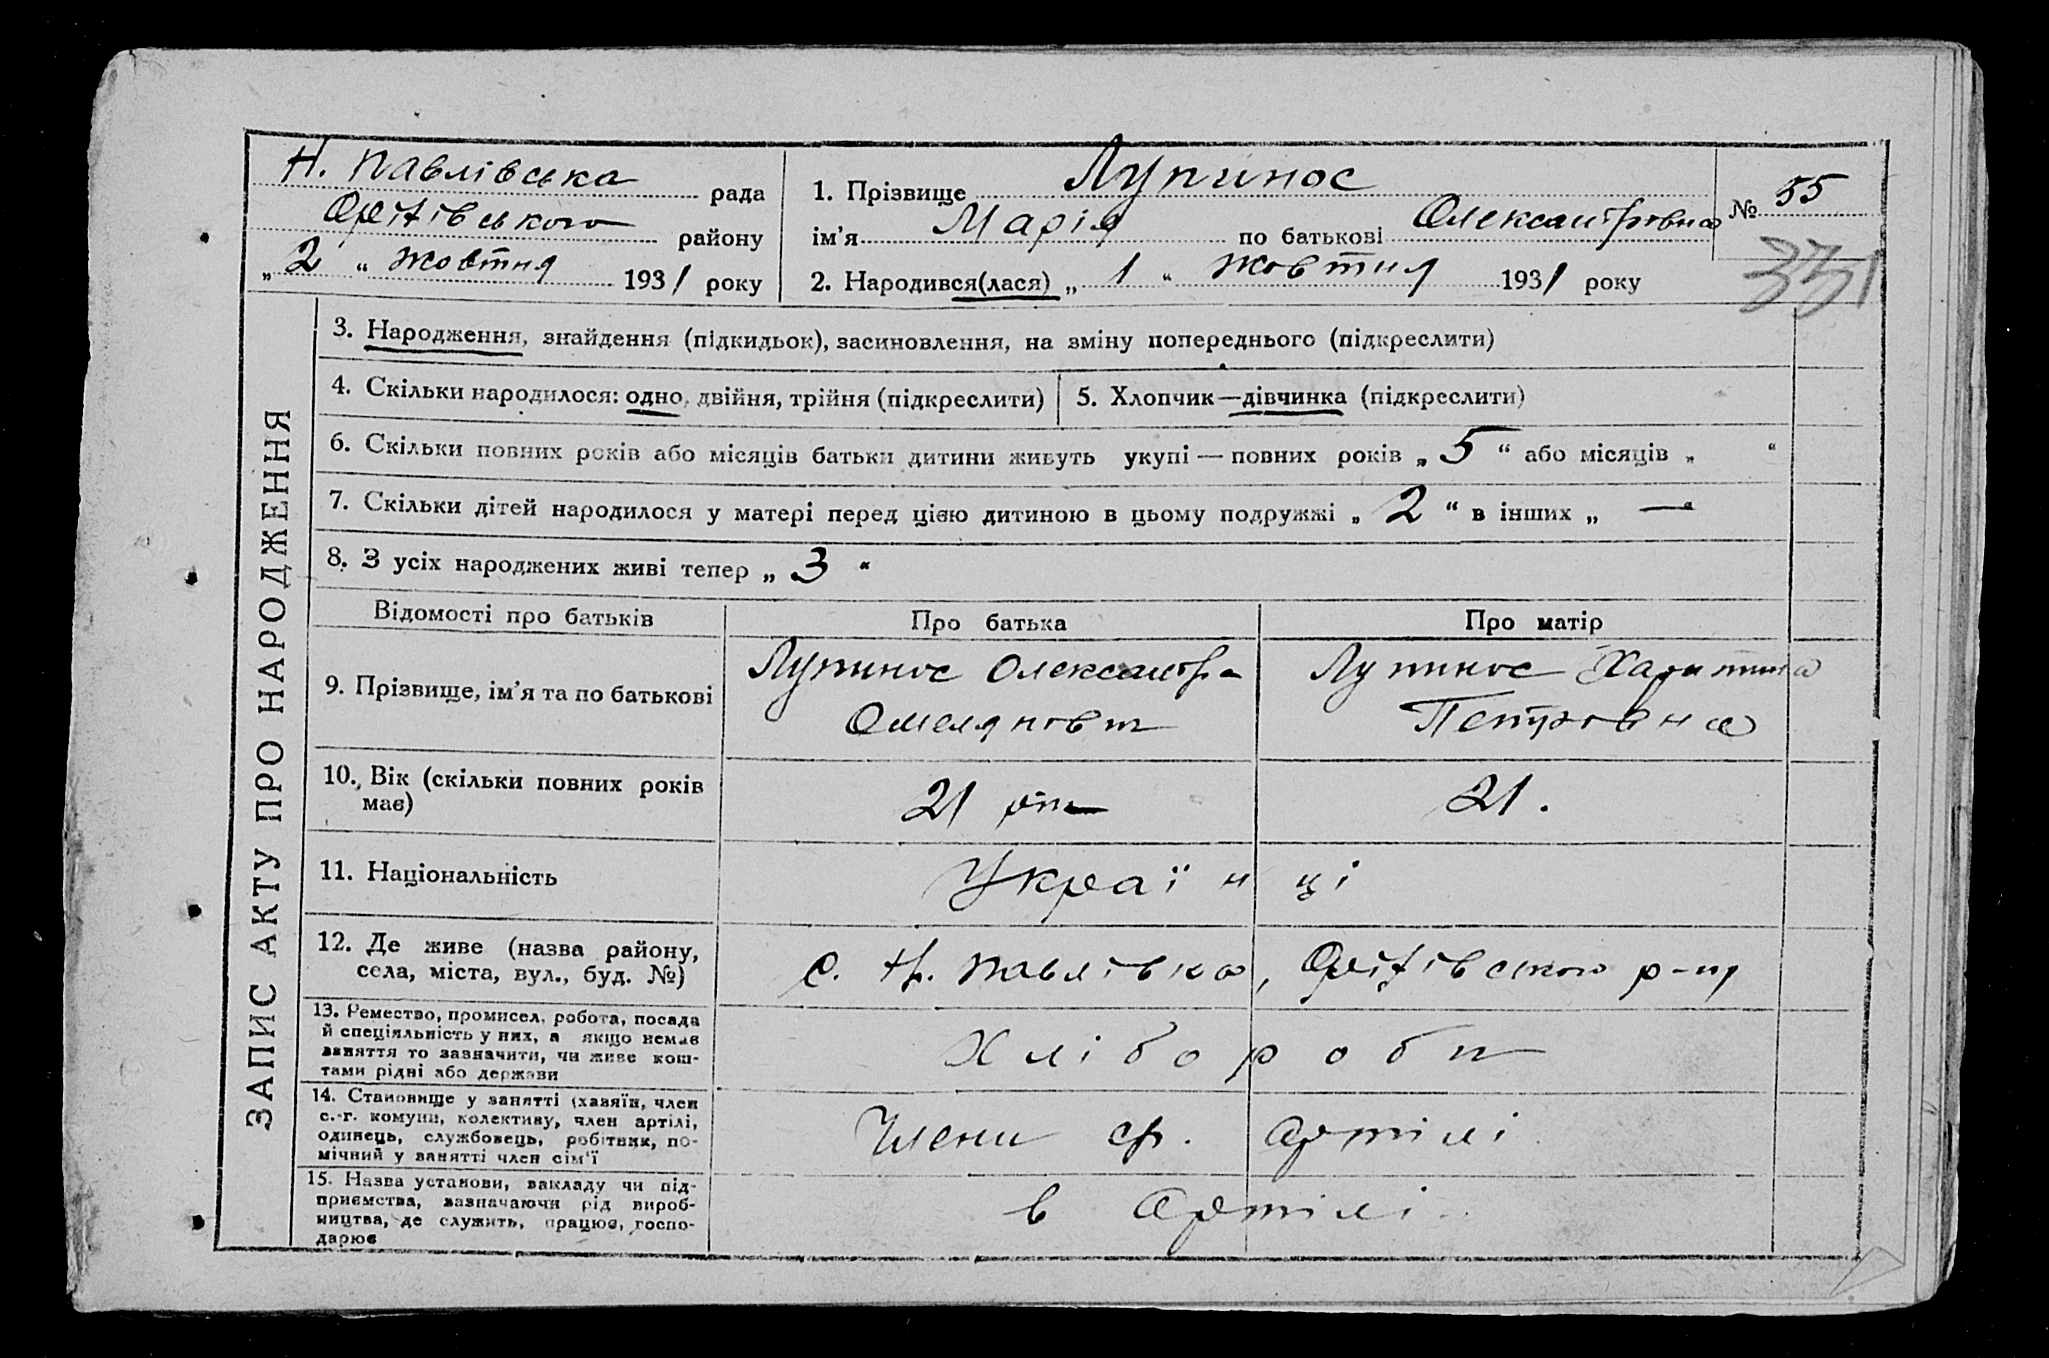 Н. Павлівська рада
Оріхівського району
„ 2 “ жовтня 1931 року
1. Прізвище Лупинос
ім’я Марія по батькові Олександровна
2. Народився(лася) „ 1 “ жовтня 1931 року
№ 55
331
ЗАПИС АКТУ ПРО НАРОДЖЕННЯ
3. Народження, знайдення (підкидьок), засиновлення, на зміну попереднього (підкреслити)
4. Скільки народилося: одно, двійня, трійня (підкреслити)
5. Хлопчик—дівчинка (підкреслити)
6. Скільки повних років або місяців батьки дитини живуть укупі — повних років „ 5 “ або місяців „ “
7. Скільки дітей народилося у матері перед цією дитиною в цьому подружжі „ 2 “ в інших „ — “
8. З усіх народжених живі тепер „ 3 “
Відомості про батьків Про батька Про матір
9. Прізвище, ім’я та по батькові
Лупинос Олександр
Омелянович
Лупинос Харитина
Петровна
10. Вік (скільки повних років
має)
21 21.
11. Національність Українці
12. Де живе (назва району,
села, міста, вул., буд. №)
с. Н. Павлівка, Оріхівського р-ну
13. Ремество, промисел, робота, посада
й спеціяльність у них, а якщо немає
заняття то зазначити, чи живе кош-
тами рідні або держави
Хлібороби
14. Становище у занятті (хазяїн, член
с.-г. комуни, колективу, член артілі,
одинець, службовець, робітник, по-
мічний у занятті член сім’ї
Члени ср. артілі
15. Назва установи, закладу чи під-
приємства, зазначаючи рід вироб-
ництва, де служить, працює, госпо-
дарює
в артілі